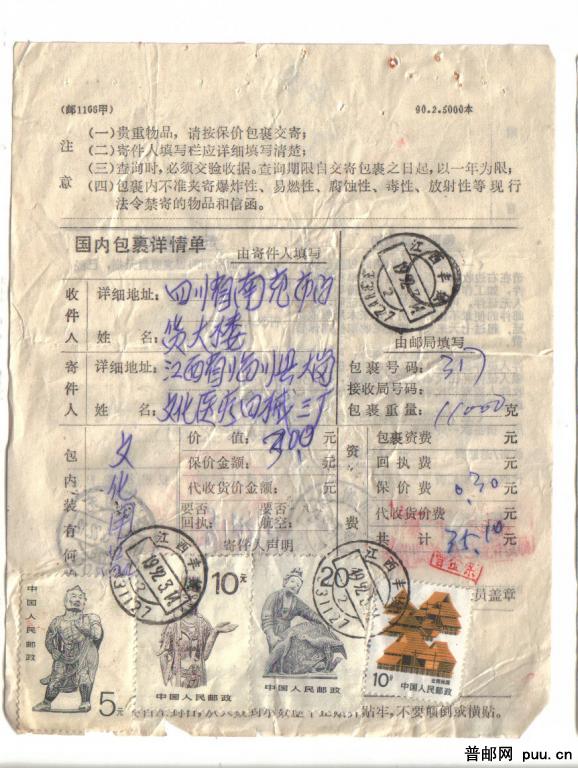 (邮1106甲) 90.2.5000本
注意
(一)贵重物品，请按保价包裹交寄；
(二)寄件人填写栏应详细填写清楚；
(三)查询时，必须交验收据。查询期限自交寄包裹之日起，以一年为限；
(四)包裹内不准夹寄爆炸性、易燃性、腐蚀性、毒性、放射性等现行
法令禁寄的物品和信函。
国内包裹详情单 由寄件人填写
收件人
详细地址：四川省南充市百
姓名：货大楼
寄件人
详细地址：江西省临川县
姓名：文化医疗四械三厂
由邮局填写
包裹号码：317
接收局号码：
包裹重量：11000克
包内装有何
文化用品
价值：300元
保价金额：元
代收货价金额：元
要否回执： 要否航空：
寄件人声明
资费
包裹资费 元
回执费 元
保价费 0.30元
代收货价费 元
共计 35.10元
员盖章
江西丰城
江西丰
1992.3.14
331127
江西丰
331127
中国人民邮政
5元
10元
中国人民邮政
20元
中国人民邮政
10分
中国人民邮政
贴牢，不要颠倒或横贴。
普邮网 puu.cn